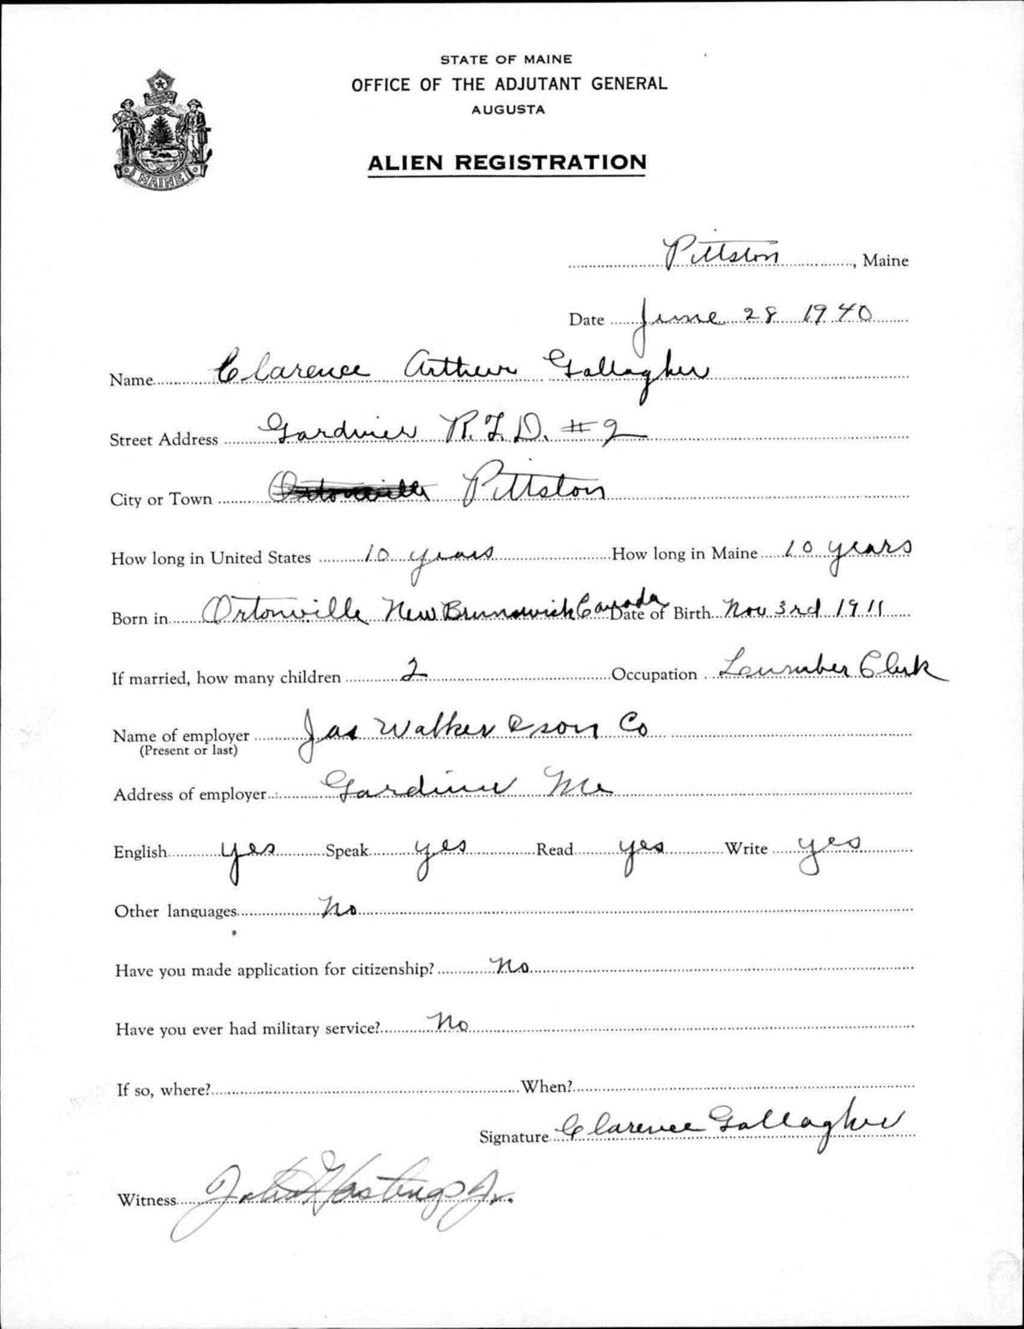 STATE OF MAINE
OFFICE OF THE ADJUTANT GENERAL
AUGUSTA
ALIEN REGISTRATION
MAINE
Pittston, Maine
Date June 28 1940
Name Clarence Arthur Gallagher
Street Address Gardiner R.F.D. #2
City or Town Ortonville Pittston
How long in United States 10 years How long in Maine 10 years
Born in Ortonville New Brunswick Canada Date of Birth Nov 3rd 1911
If married, how many children 2 Occupation Lumber Clerk
Name of employer Jas Walker & son Co
(Present or last)
Address of employer Gardiner Me
English yes Speak yes Read yes Write yes
Other languages No
Have you made application for citizenship? No
Have you ever had military service? No
If so, where? When?
Signature Clarence Gallagher
Witness John Hastings Jr.